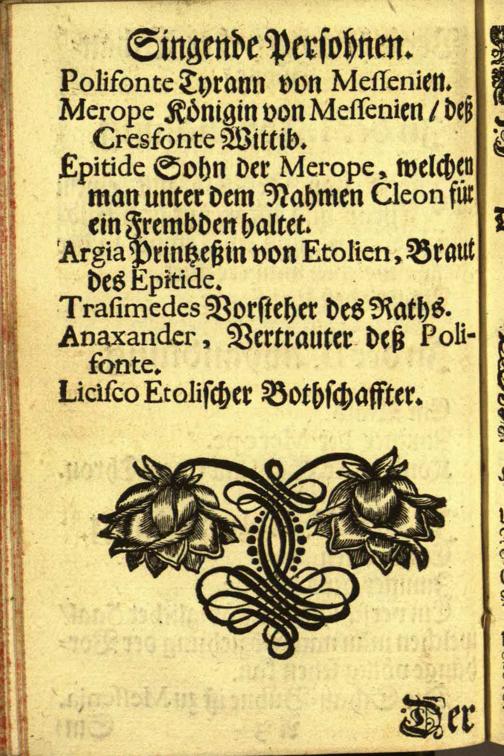 Singende Persohnen.
Polifonte Tyrann von Messenien.
Merope Königin von Messenien / deß
Cresfonte Wittib.
Epitide Sohn der Merope, welchen
man unter dem Nahmen Cleon für
ein Frembden haltet.
Argia Printzeßin von Etolien, Braut
des Epitide.
Trasimedes Vorsteher des Raths.
Anaxander, Vertrauter deß Poli-
fonte.
Licisco Etolischer Bothschaffter.
Der